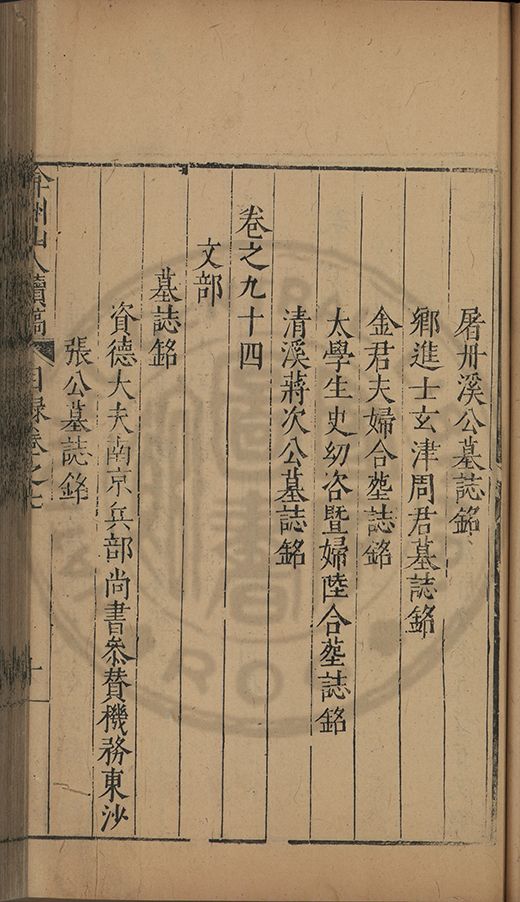 屠丹溪公墓誌銘
鄉進士玄津周君墓誌銘
金君夫婦合塟誌銘
太學生史幼咨暨婦陸合塟誌銘
清溪蔣次公墓誌銘
卷之九十四
文部
墓誌銘
資德大夫南京兵部尚書叅賛機務東沙
張公墓誌銘
弇州山人續稿 目録卷之七